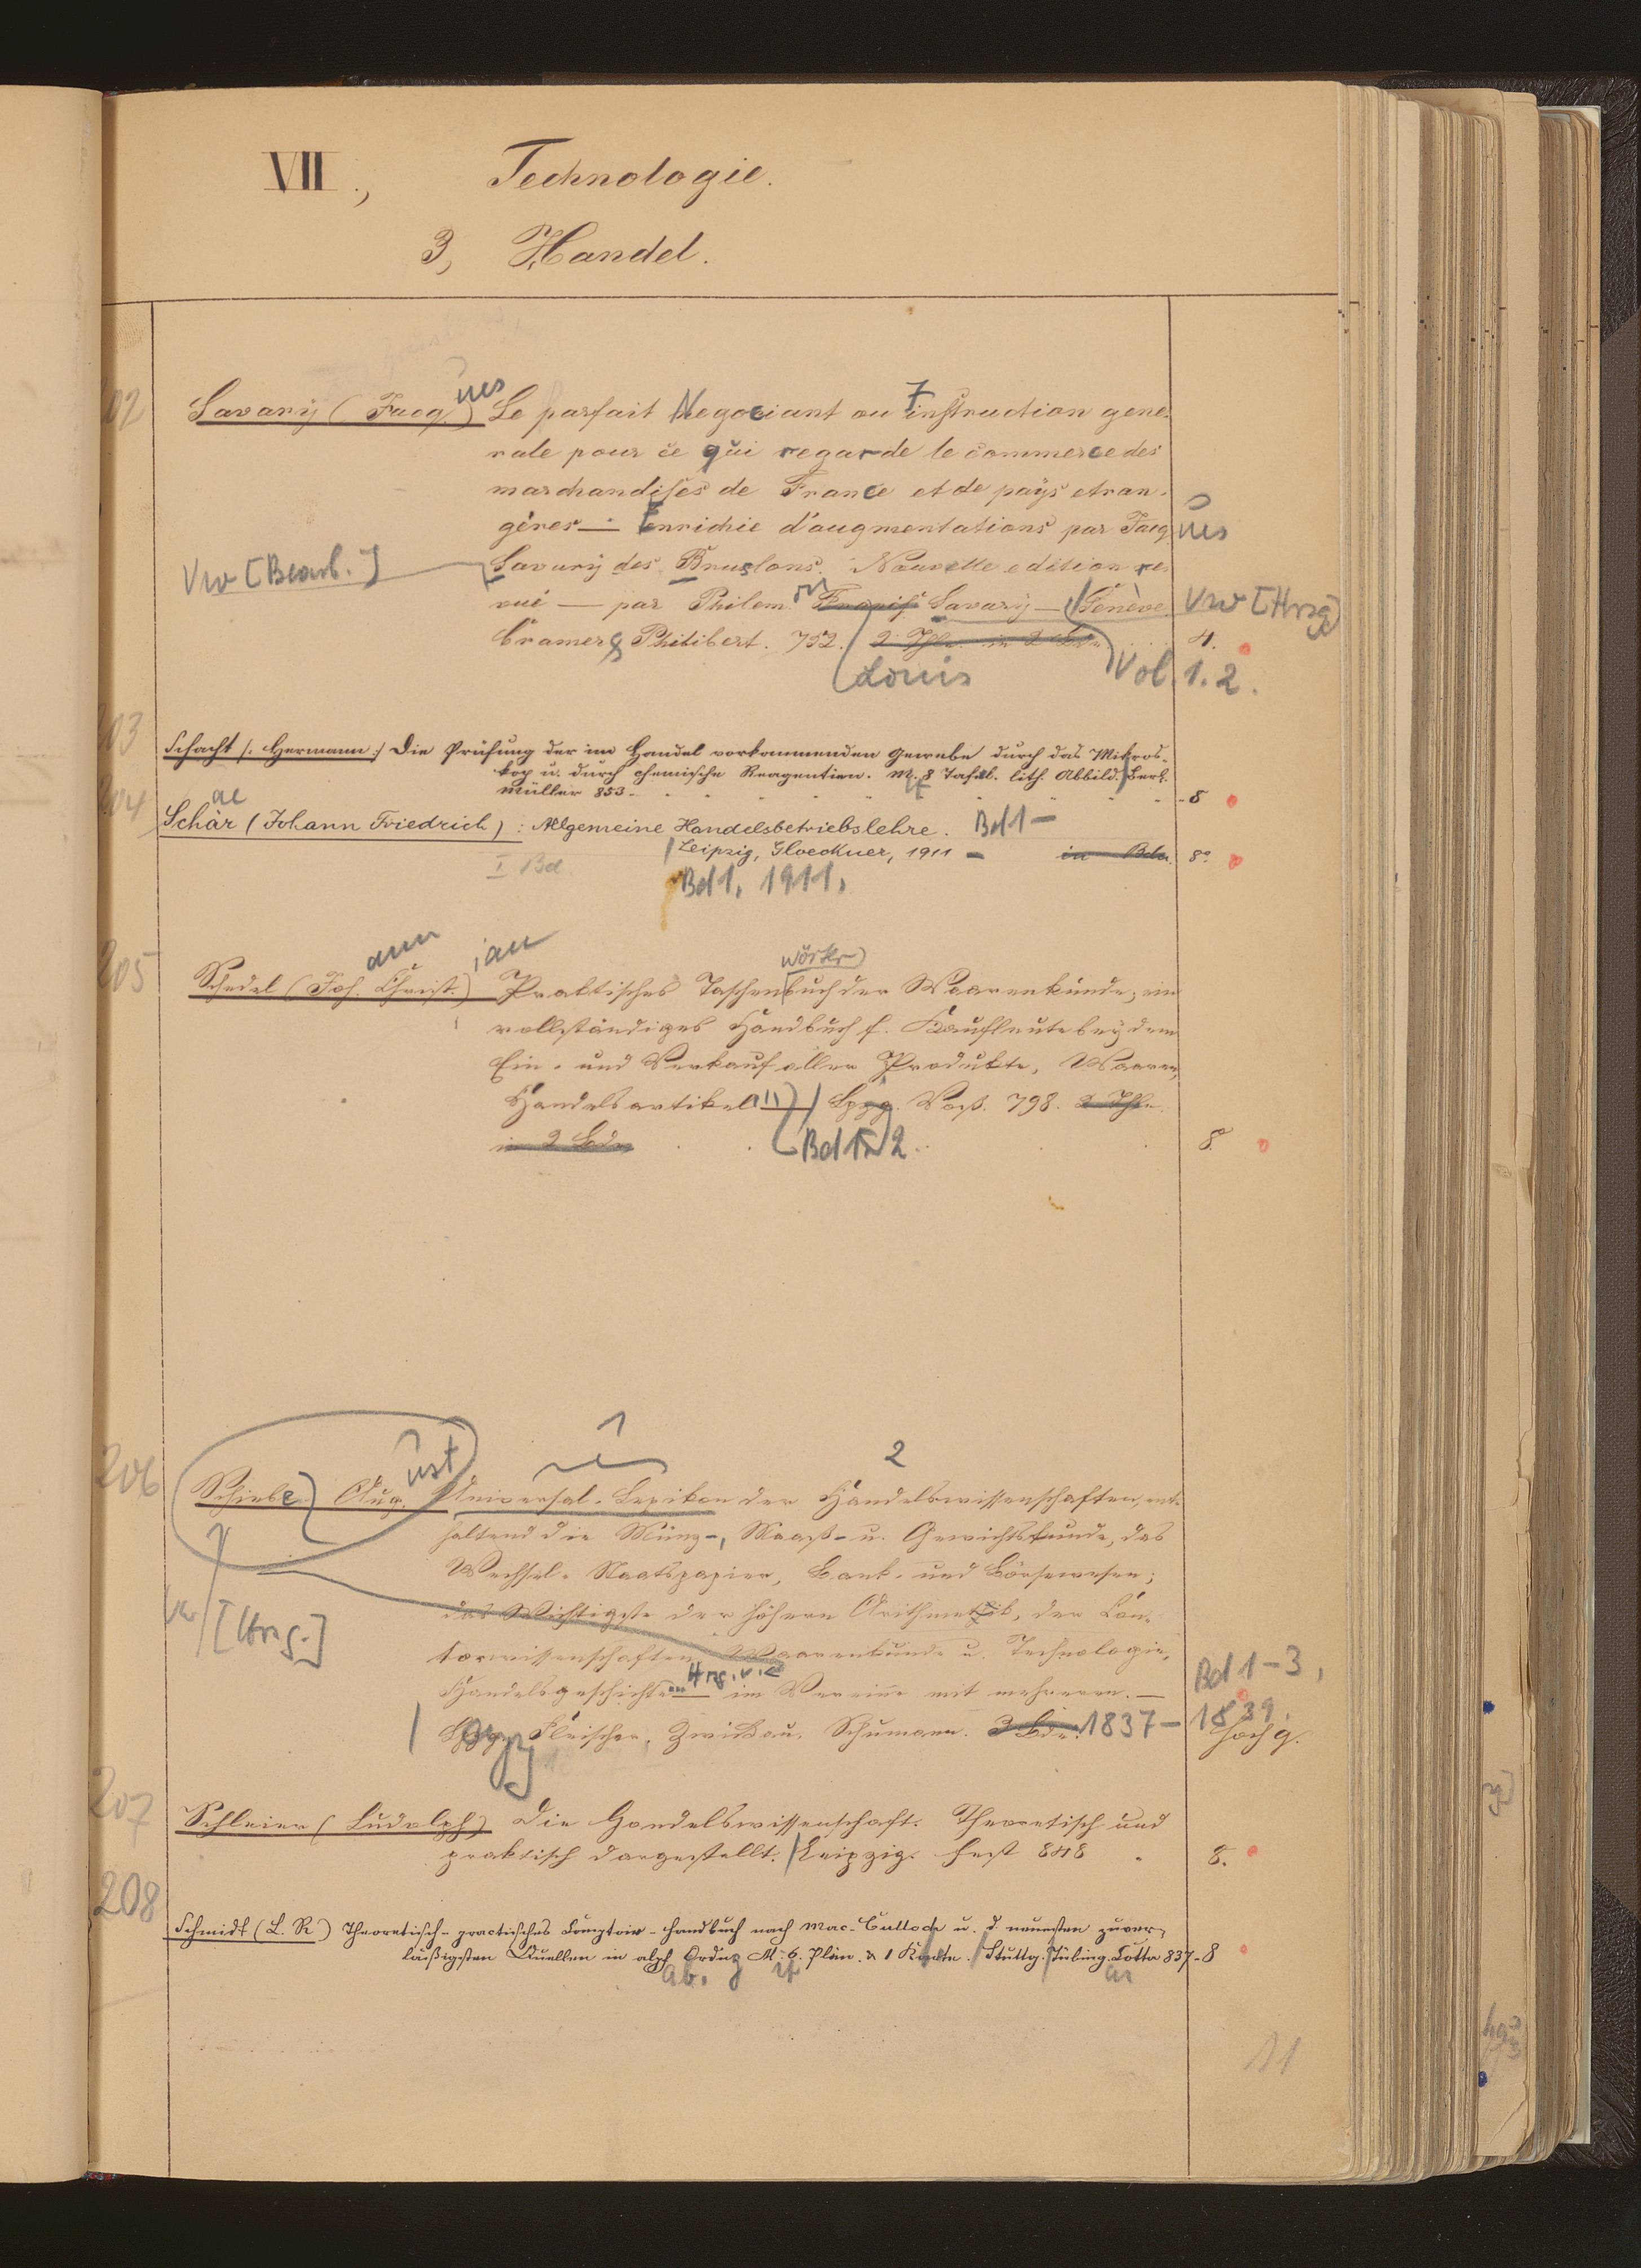 VII., Technologie.
3, Handel.
202 Savary (Jacq.) ues Le parfait Negociant ou Instruction gene-
rale pour ce qui regarde le commerce des
marchandises de France et de pays etran-
géres — Enrichie d'augmentations par Jacq ues
Vw [Bearb.] Savary des Bruslons. Nouvelle edition re-
vuë — par Philem. on Savary — Genève Vw [Hrsg]
Cramer & Philibert. 752. 2 Thle. in 2 Bdn 4.
Louis Vol. 1. 2.
203 Schacht (: Hermann :) Die Prüfung der im Handel vorkommenden Gewebe durch das Mikros-
kop u. durch chemische Reagentien. M. 8 Tafel. lith. Abbild. Berl.
Müller 853 - 8
204 ae
Schär (Johann Friedrich) : Allgemeine Handelsbetriebslehre. Bd 1 —
Leipzig, Gloeckner, 1911 - in Bdn. 8°
I Bd. Bd 1. 1911.
ann ian wörter
205 Schedel (Joh. Christ.) Praktisches Taschenbuch der Waarenkunde; ein
vollständiges Handbuch f. Kaufleute bey dem
Ein- und Verkauf aller Produkte, Waaren,
Handelsartikel — Lpzg. Voß. 798. 2 Thle.
in 2 Bdn Bd 1 2. 8.
1
ust 2
206 Schiebe Aug. Universal-Lexikon der Handelswissenschaften, ent-
haltend die Münz-, Maaß- u. Gewichtskunde, das
Wechsel- Staatspapier, Bank- und Börsewesen;
das Wichtigste der höhern Arithmetik, der Con-
[Hrsg.] torwissenschaften, Waarenkunde u. Technologie,
Handelsgeschichte Hrsg. v. im Vereine mit mehreren. — Bd 1-3,
Lpzg. Fleischer. Zwickau. Schumann. 3 Bde. 1837 - 1839.
hoch 4.
207 Schleier (Ludolph) Die Handelswissenschaft. Theoretisch und
praktisch dargestellt. Leipzig. Fest 848 8.
208 Schmidt (L. R.) Theoretisch-practisches Comptoir-Handbuch nach Mac-Culloch u. d. neuesten zuver-
läßigsten Quellen in alph Ordng M. 6. Plän. & 1 Karte. Stuttg. Tübing. Cotta 837 - 8
ab.
11